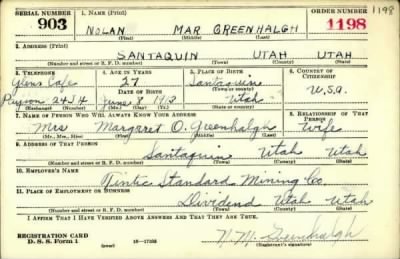 1198
SERIAL NUMBER 1. NAME (Print) ORDER NUMBER
903 NOLAN MAR GREENHALGH 1198
(First) (Middle) (Last)
2. ADDRESS (Print)
SANTAQUIN UTAH UTAH
(Number and street or R. F. D. number) (Town) (County) (State)
3. TELEPHONE 4. AGE IN YEARS 5. PLACE OF BIRTH 6. COUNTRY OF CITIZENSHIP
Glens Cafe 27 Santaquin
DATE OF BIRTH (Town or county) U.S.A.
Payson 24J4 June 8 1913 Utah
(Exchange) (Number) (Mo.) (Day) (Yr.) (State or country)
7. NAME OF PERSON WHO WILL ALWAYS KNOW YOUR ADDRESS 8. RELATIONSHIP OF THAT PERSON
Mrs Margaret O. Greenhalgh Wife
(Mr., Mrs., Miss) (First) (Middle) (Last)
9. ADDRESS OF THAT PERSON
Santaquin Utah Utah
(Number and street or R. F. D. number) (Town) (County) (State)
10. EMPLOYER'S NAME
Tintic Standard Mining Co.
11. PLACE OF EMPLOYMENT OR BUSINESS
Dividend Utah Utah
(Number and street or R. F. D. number) (Town) (County) (State)
I AFFIRM THAT I HAVE VERIFIED ABOVE ANSWERS AND THAT THEY ARE TRUE.
REGISTRATION CARD
D. S. S. Form 1 (over) N. M. Greenhalgh
(Registrant's signature)